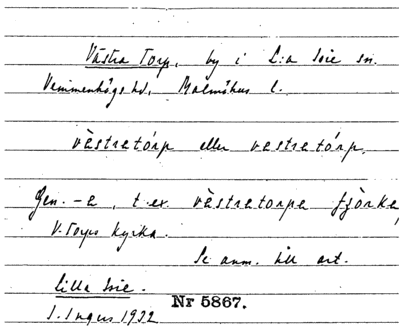 Västra Torp, by i L:a Isie sn.
Vemmenhögs hd, Malmöhus l.
vèstretórp eller vestretórp.
Gen. -a, t.ex. vèstretorpa
V. Torps kyrka.
Se anm. till art.
Lilla Isie.
Nr 5867.
I. Ingers 1932